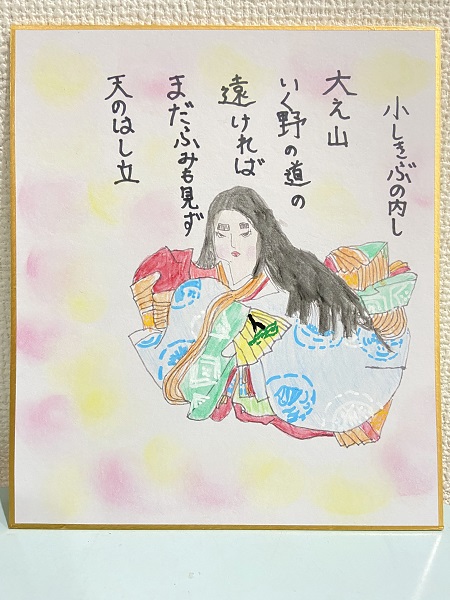 小しきぶの内し
大え山
いく野の道の
遠ければ
まだふみも見ず
天のはし立